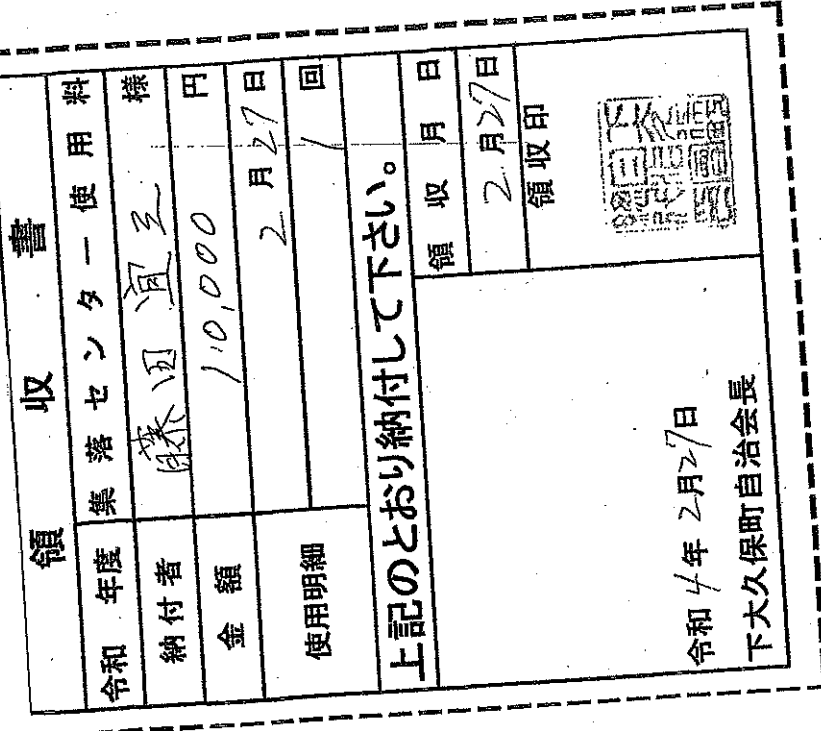 領収書
令和 年度 集落センター使用料
納付者 藤田宜三 様
金額 10,000 円
使用明細 2月27日
1 回
上記のとおり納付して下さい。
領収月日
2月27日
領収印
令和4年2月27日
下大久保町自治会長